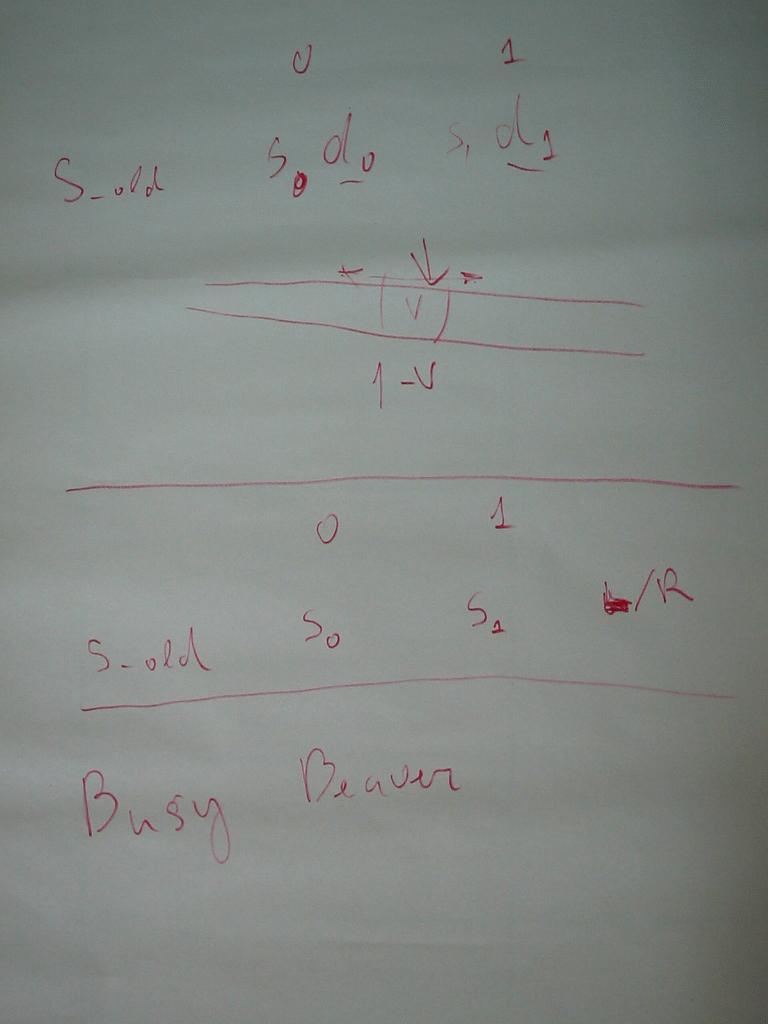 0 1
S-old s0 d0 s1 d1
V
1-V
0 1
S-old S0 S1 L/R
Busy Beaver